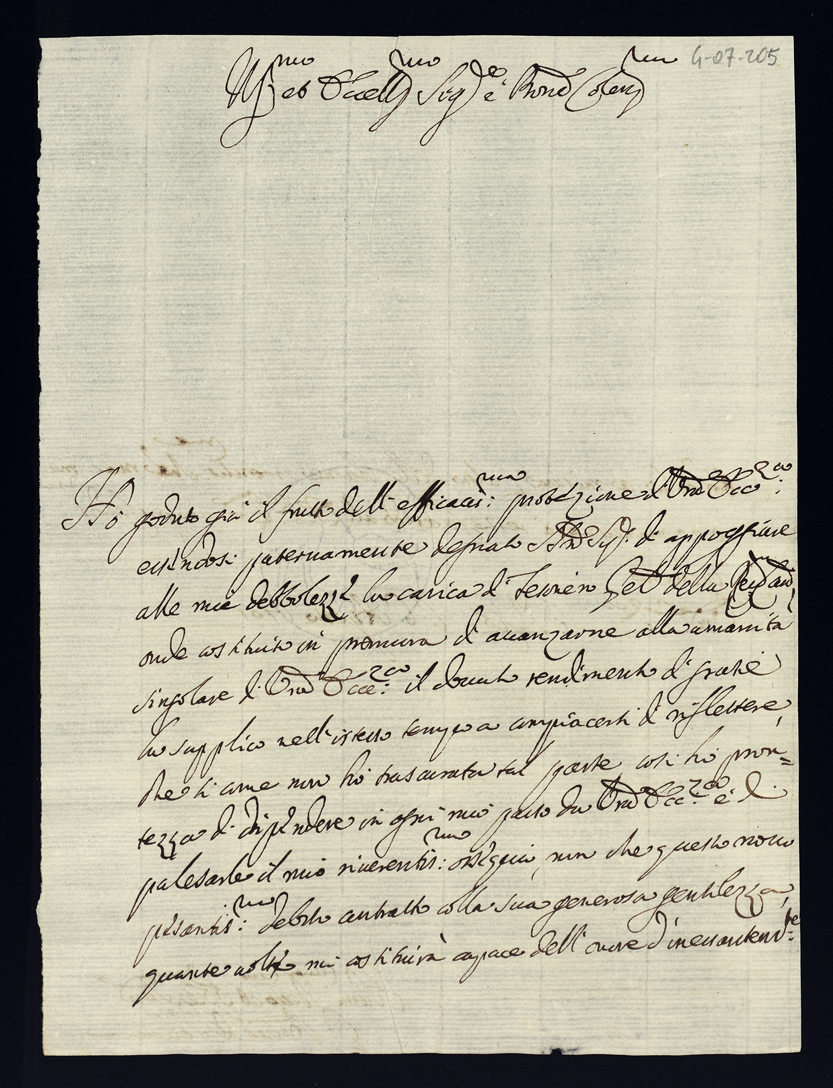 4-07-205
Ill.mo ed Eccell.mo Sig.re e Prone Colen.mo
Hò goduto già il frutto dell'efficaciss:ma protezione di Vra Ecc.za:
essendosi paternamente degnato di appoggiare
alle mie debbolezze la carica di Tesorier Gel della
onde costituito in premura di avanzarne alla umanità
singolare di Vra Ecce:za il dovuto rendimento di gratie
la supplico nell'istesso tempo a compiacersi di riflettere,
che si come non hò trascurata tal parte così hò pron=
tezza di dipendere in ogni mio passo da Vra Ecc:za e di
palesarle il mio riverentis:mo ossequio, non che questo novo
pesantis:mo debito contratto colla sua generosa gentilezza,
quante volte mi costituirà capace dell'onore d'incessantem:te